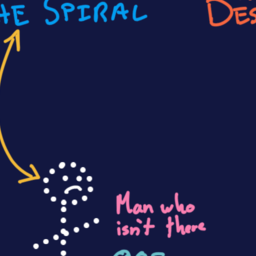 HE SPIRAL
DES
Man who
isn't there